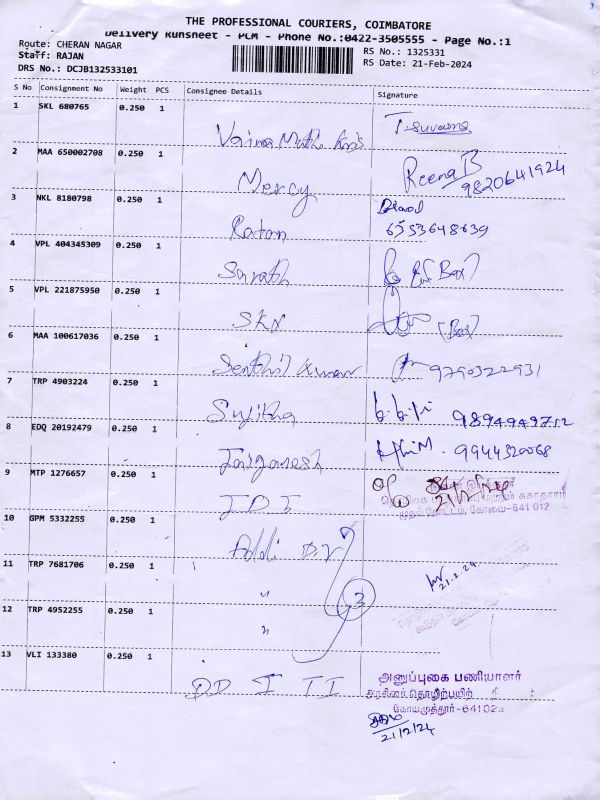 THE PROFESSIONAL COURIERS, COIMBATORE
Delivery Runsheet - PCM - Phone No.:0422-3505555 - Page No.:1
Route: CHERAN NAGAR
RS No.: 1325331
Staff: RAJAN
RS Date: 21-Feb-2024
DRS No.: DCJB132533101
S No Consignment No Weight PCS Consignee Details Signature
1 SKL 680765 0.250 1
2 MAA 650002708 0.250 1 Mercy Reena B
9820641924
3 NKL 8180798 0.250 1 Ratan
6553648639
4 VPL 404345309 0.250 1 Sarath
5 VPL 221875950 0.250 1 SKN (Box)
6 MAA 100617036 0.250 1 Senthil Kumar 9790322931
7 TRP 4903224 0.250 1 Sujitha
8 EDQ 20192479 0.250 1 Jaiganesh 9944320068
9 MTP 1276657 0.250 1
கோவை-641 012
10 GPM 5332255 0.250 1
11 TRP 7681706 0.250 1 "
21.2.24
12 TRP 4952255 0.250 1 " 3
13 VLI 133380 0.250 1 DD ITI
அனுப்புகை பணியாளர்
கோயமுத்தூர்-64102
21/2/24